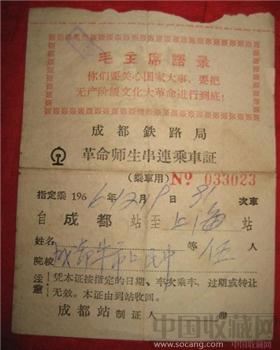 毛主席語录
你们要关心国家大事，要把
无产阶级文化大革命进行到底！
成都鉄路局
革命师生串連乘車証
（乘車用） № 033023
指定乘1966年12月9日 91 次車
自 成都 站至 上海 站
姓名 等 人
院校 成都市
注意 凭本证按指定的日期、車次乘車，过期或转让
无效。本证由到站收回。
成都站制证人
中国收藏网
www.socang.com